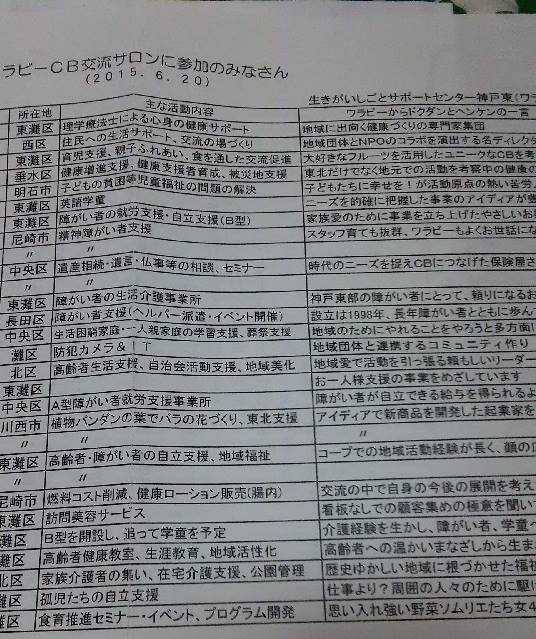 ラビーCB交流サロンに参加のみなさん
(2015.6.20)
生きがいしごとサポートセンター神戸東(ワラ
所在地 主な活動内容 ワラビーからドクダンとヘンケンの一言
東灘区 理学療法士による心身の健康サポート 地域に出向く健康づくりの専門家集団
西区 住民への生活サポート、交流の場づくり 地域団体とNPOのコラボを演出する名ディレク
東灘区 育児支援、親子ふれあい、食を通した交流促進 大好きなフルーツを活用したユニークなCBを考
垂水区 健康増進支援、健康支援者育成、被災地支援 東北だけでなく地元での活動を考察中の健康の
明石市 子どもの貧困等児童福祉の問題の解決 子どもたちに幸せを!が活動原点の熱い苦労人
東灘区 英語学童 ニーズを的確に把握した事業のアイディアが
東灘区 障がい者の就労支援・自立支援(B型) 家族愛のために事業を立ち上げたやさしいお
尼崎市 精神障がい者支援 スタッフ育ても抜群、ワラビーもよくお世話にな
〃 〃
中央区 遺産相続・遺言・仏事等の相談、セミナー 時代のニーズを捉えCBにつなげた保険屋さ
東灘区 障がい者の生活介護事業所 神戸東部の障がい者にとって、頼りになるお
長田区 障がい者支援(ヘルパー派遣・イベント開催) 設立は1998年、長年障がい者とともに歩ん
中央区 生活困窮家庭・一人親家庭の学習支援、葬祭支援 地域のためにやれることをやろうと多方面
灘区 防犯カメラ&IT 地域団体と連携するコミュニティ作り
北区 高齢者生活支援、自治会活動支援、地域美化 地域愛で活動を引っ張る頼もしいリーダー
東灘区 お一人様支援の事業をめざしています
中央区 A型障がい者就労支援事業所 障がい者が自立できる給与を得られるよ
川西市 植物パンダンの葉でバラの花づくり、東北支援 アイディアで新商品を開発した起業家を
〃 〃 〃
東灘区 高齢者・障がい者の自立支援、地域福祉 コープでの地域活動経験が長く、顔の広
〃 〃
尼崎市 燃料コスト削減、健康ローション販売(腸内) 交流の中で自身の今後の展開を考え
東灘区 訪問美容サービス 看板なしでの顧客集めの極意を聞いて
灘区 B型を開設し、追って学童を予定 介護経験を生かし、障がい者、学童へ
灘区 高齢者健康教室、生涯教育、地域活性化 高齢者への温かいまなざしから生ま
北区 家族介護者の集い、在宅介護支援、公園管理 歴史ゆかしい地域に根づかせた福祉
灘区 孤児たちの自立支援 仕事より?周囲の人々のために駆け
灘区 食育推進セミナー・イベント、プログラム開発 思い入れ強い野菜ソムリエたち女4